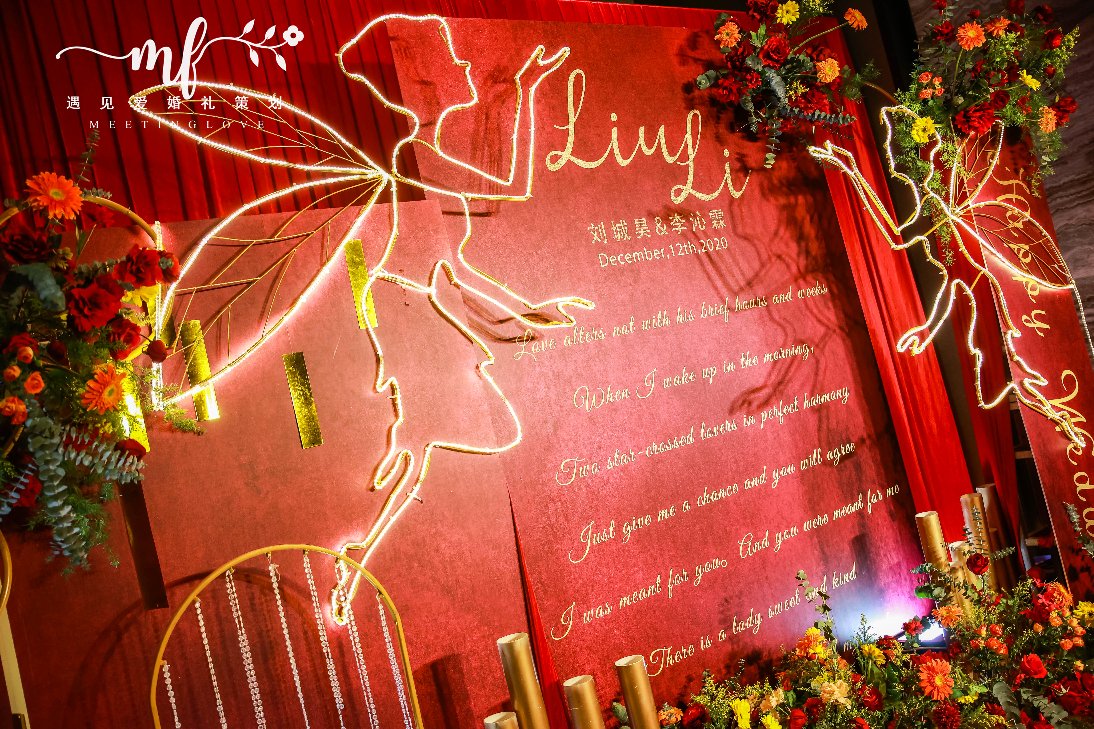 mf
遇见爱婚礼策划
MEETINGLOVE
Liu
Li
刘城昊&李沁霖
December,12th,2020
Love alters not with his brief hours and weeks
When I wake up in the morning,
Two star-crossed lovers in perfect harmony
Just give me a chance and you will agree
I was meant for you。And you were meant for me
There is a lady sweet and kind
Happy